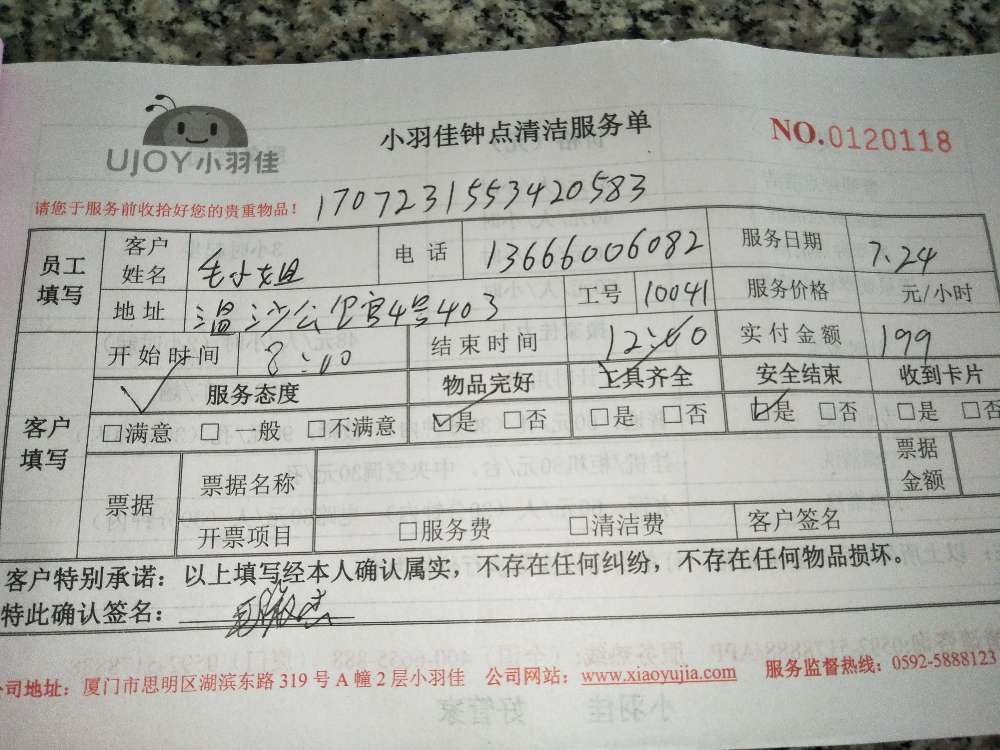 UJOY小羽佳
小羽佳钟点清洁服务单
NO.0120118
请您于服务前收拾好您的贵重物品!
1707231553420583
员工填写 客户姓名 毛小姐 电话 13666006082 服务日期 7.24
地址 温沙公馆4号403 工号 10041 服务价格 元/小时
开始时间 8:00 结束时间 12:00 实付金额 199
客户填写 服务态度 物品完好 工具齐全 安全结束 收到卡片
□满意 □一般 □不满意 ☑是 □否 □是 □否 ☑是 □否 □是 □否
票据 票据名称 票据金额
开票项目 □服务费 □清洁费 客户签名
客户特别承诺：以上填写经本人确认属实，不存在任何纠纷，不存在任何物品损坏。
特此确认签名：
公司地址：厦门市思明区湖滨东路 319 号 A 幢 2 层小羽佳 公司网站：www.xiaoyujia.com 服务监督热线：0592-5888123